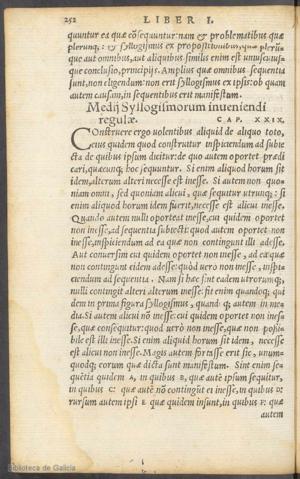 252 LIBER I.
quuntur ea quæ cōsequuntur: nam & problematibus quæ
plerunq; : & syllogismus ex propositionibus, quæ plerũ-
que aut omnibus, aut aliquibus similis enim est unuscuius-
que conclusio, principijs. Amplius quæ omnibus sequentia
sunt, non eligendum: non erit syllogismus ex ipsis: ob quam
autem causam, in sequentibus erit manifestum.
Medij Syllogismorum inueniendi
regulæ. CAP. XXIX.
Construere ergo uolentibus aliquid de aliquo toto,
eius quidem quod construitur inspiciendum ad subie
cta de quibus ipsum dicitur: de quo autem oportet prædi
cari, quæcunq; hoc sequuntur. Si enim aliquod horum sit
idem, alterum alteri necesse est inesse. Si autem non quo-
niam omni, sed quoniam alicui, quæ sequitur utrunq; : si
enim aliquod horum idem fuerit, necesse est alicui inesse.
Quando autem nulli oporteat inesse, cui quidem oportet
non inesse, ad sequentia subiecti: quod autem oportet non
inesse, inspiciendum ad ea quæ non contingunt illi adesse.
Aut conuersim cui quidem oportet non inesse, ad ea quæ
non contingunt eidem adesse: quòd uero non inesse, inspi-
ciendum ad sequentia. Nam si hæc sint eadem utrorumq;,
nulli contingit alteri alterum inesse: fit enim quandoq; qui
dem in prima figura syllogismus, quandoq; autem in me-
dia. Si autem alicui nō inesse: cui quidem oportet non ines-
se, quæ consequitur: quod uerò non inesse, quæ non possi-
bile est illi inesse. Si enim aliquid horum sit idem, necesse
est alicui non inesse. Magis autem fortasse erit sic, unum-
quodq; eorum quæ dicta sunt manifestum. Sint enim se-
quētia quidem A, in quibus B, quæ autē ipsum sequitur,
in quibus C: quæ autē nō contingũt ei inesse, in quibus D:
rursum autem ipsi E quæ quidem insunt, in quibus F: quæ
autem
Biblioteca de Galicia